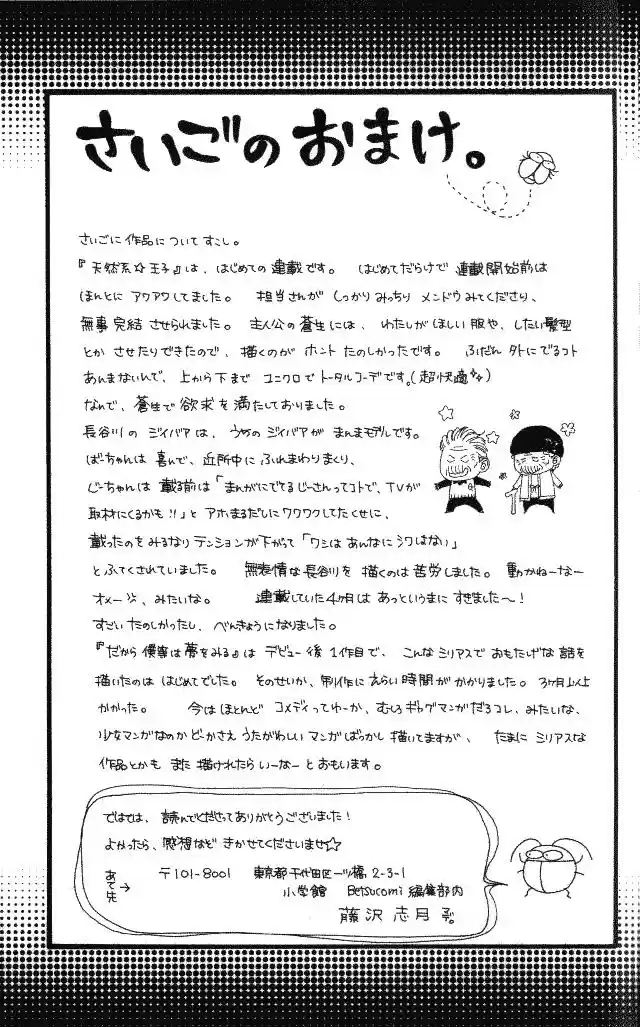 さいごのおまけ。
さいごに作品についてすこし。
『天然系☆王子』は、はじめての連載です。 はじめてだらけで連載開始前は
ほんとにアワアワしてました。 担当さんがしっかりみっちりメンドウみてくださり、
無事完結させられました。 主人公の蒼生には、わたしがほしい服や、したい髪型
とかさせたりできたので、描くのがホントたのしかったです。 ふだん外にでるコト
あんまないんで、上から下までユニクロでトータルコーデです。(超快適✨)
なんで、蒼生で欲求を満たしておりました。
長谷川のジイバアは、うちのジイバアがまんまモデルです。
ばーちゃんは喜んで、近所中にふれまわりまくり、
じーちゃんは載る前は「まんがにでてるじーさんってコトで、TVが
取材にくるかも!!」とアホまるだしにワクワクしてたくせに、
載ったのをみるなりテンションが下がって「ワシはあんなにシワはない」
とふてくされていました。 無表情な長谷川を描くのは苦労しました。動かねーなー
オメー、みたいな。 連載していた4ヶ月はあっというまにすぎました〜!
すごいたのしかったし、べんきょうになりました。
『だから僕等は夢をみる』はデビュー後1作目で、こんなシリアスでおもたげな話を
描いたのははじめてでした。そのせいか、制作にえらい時間がかかりました。3ヶ月以上
かかった。 今はほとんどコメディってゆーか、むしろギャグマンガだろコレ、みたいな、
少女マンガなのかどーかさえうたがわしいマンガばっかし描いてますが、 たまにシリアスな
作品とかもまた描けれたらいーなーとおもいます。
ではでは、読んでくださってありがとうございました!
よかったら、感想などきかせてくださいませ☆
あて先→
〒101-8001 東京都千代田区一ツ橋2-3-1
小学館 Betsucomi編集部内
藤沢志月